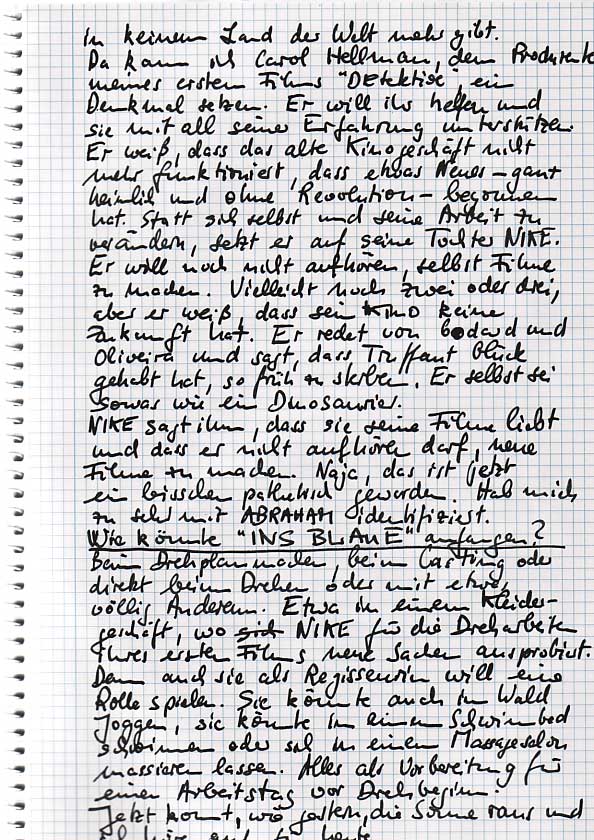 in keinem Land der Welt mehr gibt.
Da kann ich Carol Hellman, dem Produzente
meines ersten Films "DETEKTIVE", ein
Denkmal setzen. Er will ihr helfen und
sie mit all seiner Erfahrung unterstützen.
Er weiß, dass das alte Kinogeschäft nicht
mehr funktioniert, dass etwas Neues – ganz
heimlich und ohne Revolution – begonnen
hat. Statt sich selbst und seine Arbeit zu
verändern, setzt er auf seine Tochter NIKE.
Er will noch nicht aufhören, selbst Filme
zu machen. Vielleicht noch zwei oder drei,
aber er weiß, dass sein KINO keine
Zukunft hat. Er redet von Godard und
Oliveira und sagt, dass Truffaut Glück
gehabt hat, so früh zu sterben. Er selbst sei
sowas wie ein Dinosaurier.
NIKE sagt ihm, dass sie seine Filme liebt
und dass er nicht aufhören darf, neue
Filme zu machen. Naja, das ist jetzt
ein bisschen pathetisch geworden. Hab mich
zu sehr mit ABRAHAM identifiziert.
Wie könnte "INS BLAUE" anfangen?
Beim Drehplanmachen, beim Casting oder
direkt beim Drehen oder mit etwas
völlig Anderem. Etwa in einem Kleider-
geschäft, wo sich NIKE für die Dreharbeiten
ihres ersten Films neue Sachen ausprobiert.
Denn auch sie als Regisseurin will eine
Rolle spielen. Sie könnte auch im Wald
joggen, sie könnte in einem Schwimmbad
schwimmen oder sich in einem Massagesalon
massieren lassen. Alles als Vorbereitung für
einen Arbeitstag vor Drehbeginn.
Jetzt kommt, wie gestern, die Sonne raus und